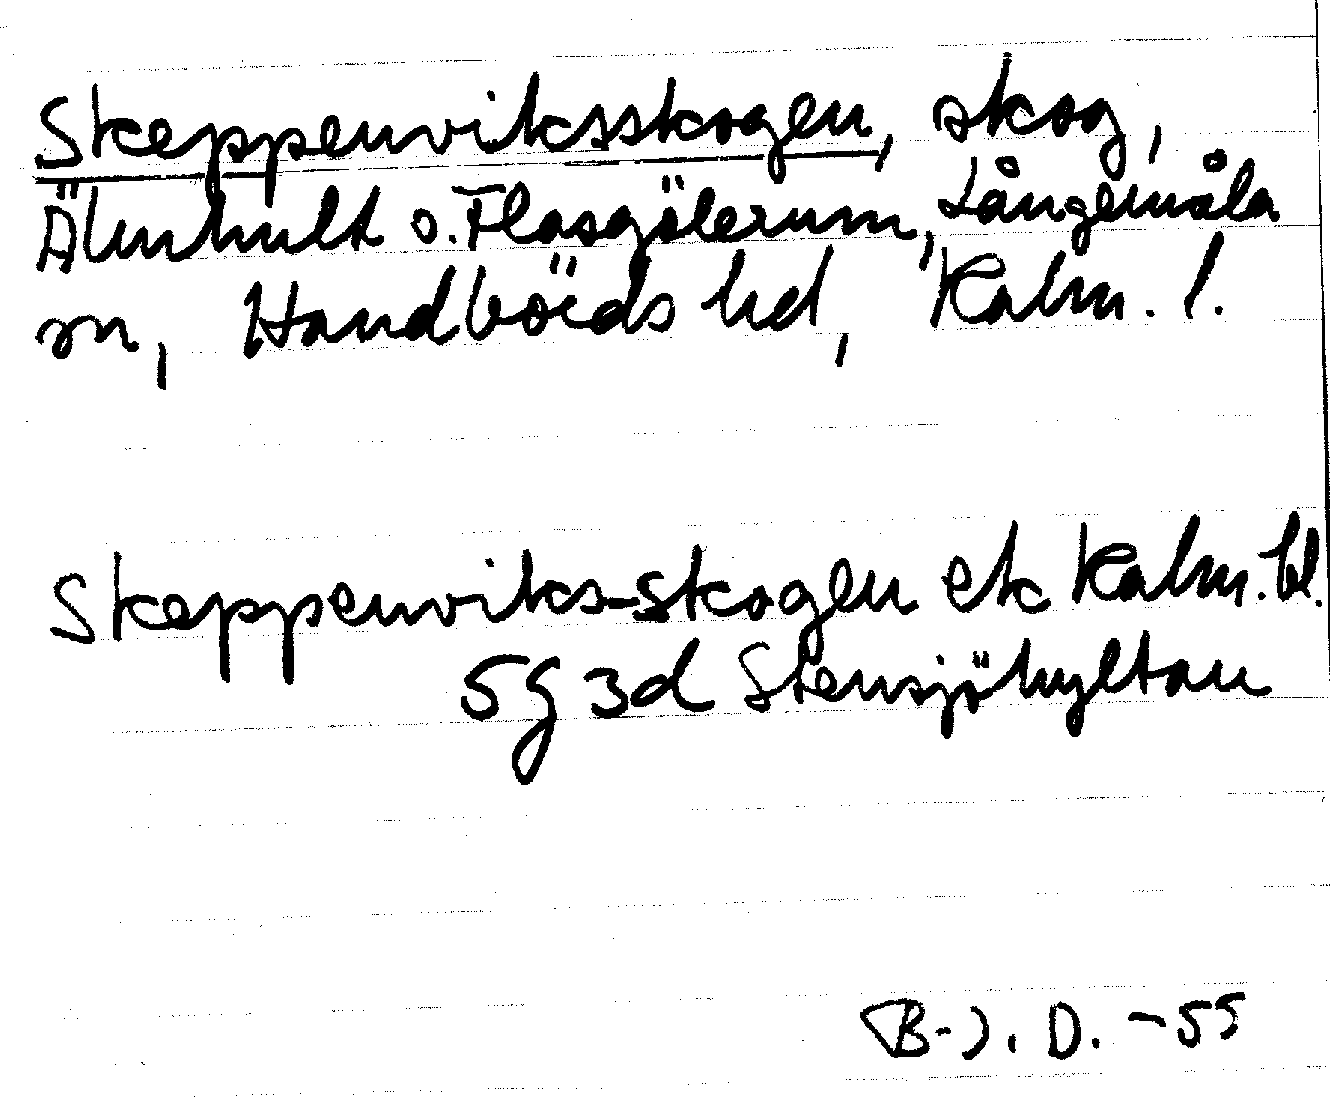 Skeppenviksskogen, skog,
Älmhult o. Flasgölerum, Långemåla
sn, Handbörds hd, Kalm. l.
Skeppenviks-skogen ek Kalm. bl.
5g 3d Stensjöhyltan
B-J. D. -55